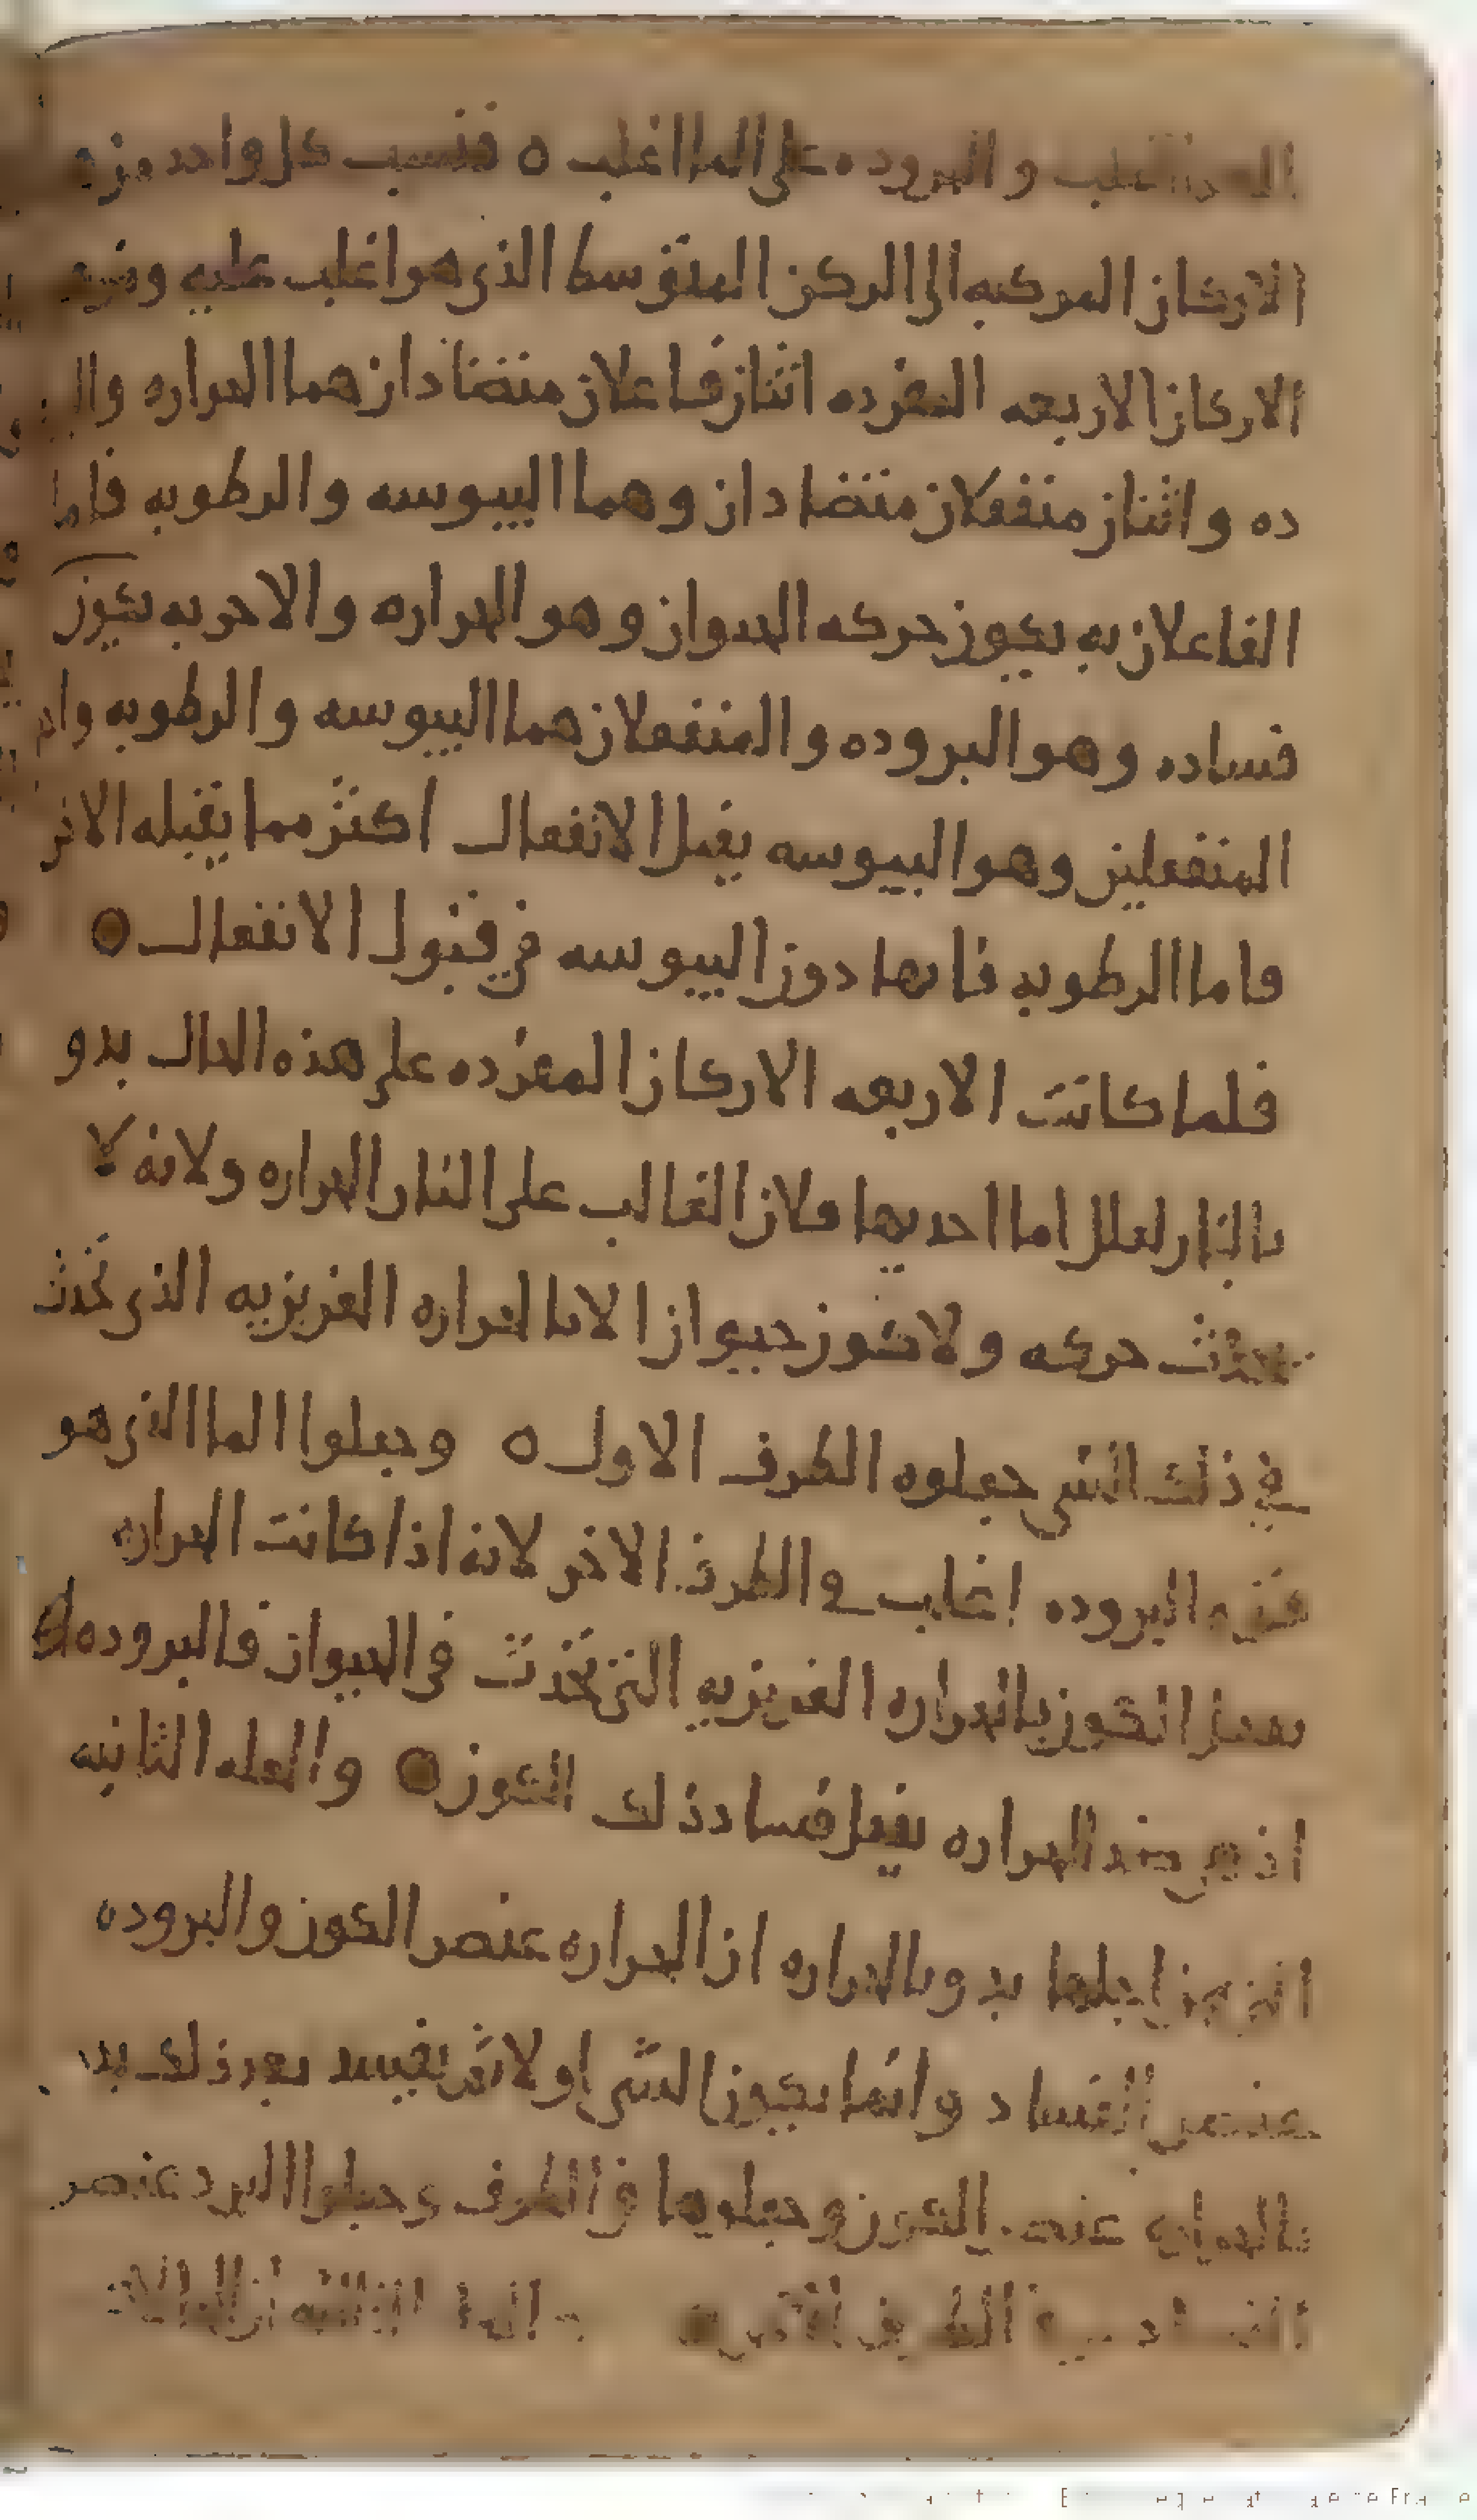 اغلب والبروده على الما اغلب ه فنسب كل واحد من
الاركان المركبه الى الركن المتوسط الذى هو اغلب عليه ومن
الاركان الاربعه المفرده اثنان فاعلان متضادان هما الحراره والبرو
ده واثنان منفعلان متضادان وهما اليبوسه والرطوبه فاما
الفاعلان به يكون حركه الحيوان وهو الحراره والاخر به يكون
فساده وهو البروده والمنفعلان هما اليبوسه والرطوبه واحد
المنفعلين وهو اليبوسه يقبل الانفعال اكثر مما يقبله الاخر
فاما الرطوبه فانها دون اليبوسه فى قبول الانفعال ه
فلما كانت الاربعه الاركان المفرده على هذه الحال بدو
بالنار لعلل اما احديها فلان الغالب على النار الحراره ولانه لا
تحدث حركه ولا كون حيوان الا بالحراره الغريزيه الذى تحدث
فى ذلك الشى جعلوه الطرف الاول ه وجعلوا الما الذى هو
البروده اغلب فى الطرف الاخر لانه اذا كانت الحراره
الكون بالحراره الغريزيه التى تحدث فى الحيوان فالبروده
اذ هى ضد الحراره تفعل فساد ذلك الكون ه والعله الثانيه
التى من اجلها بدو بالحراره ان الحراره عنصر الكون والبروده
عنصر الفساد وانما يكون الشى اولا ثم يفسد بعد ذلك
بالحراره عنصر الكون وجعلوها فى الطرف وجعلوا البرد عنصر
الفساد فى الطرف